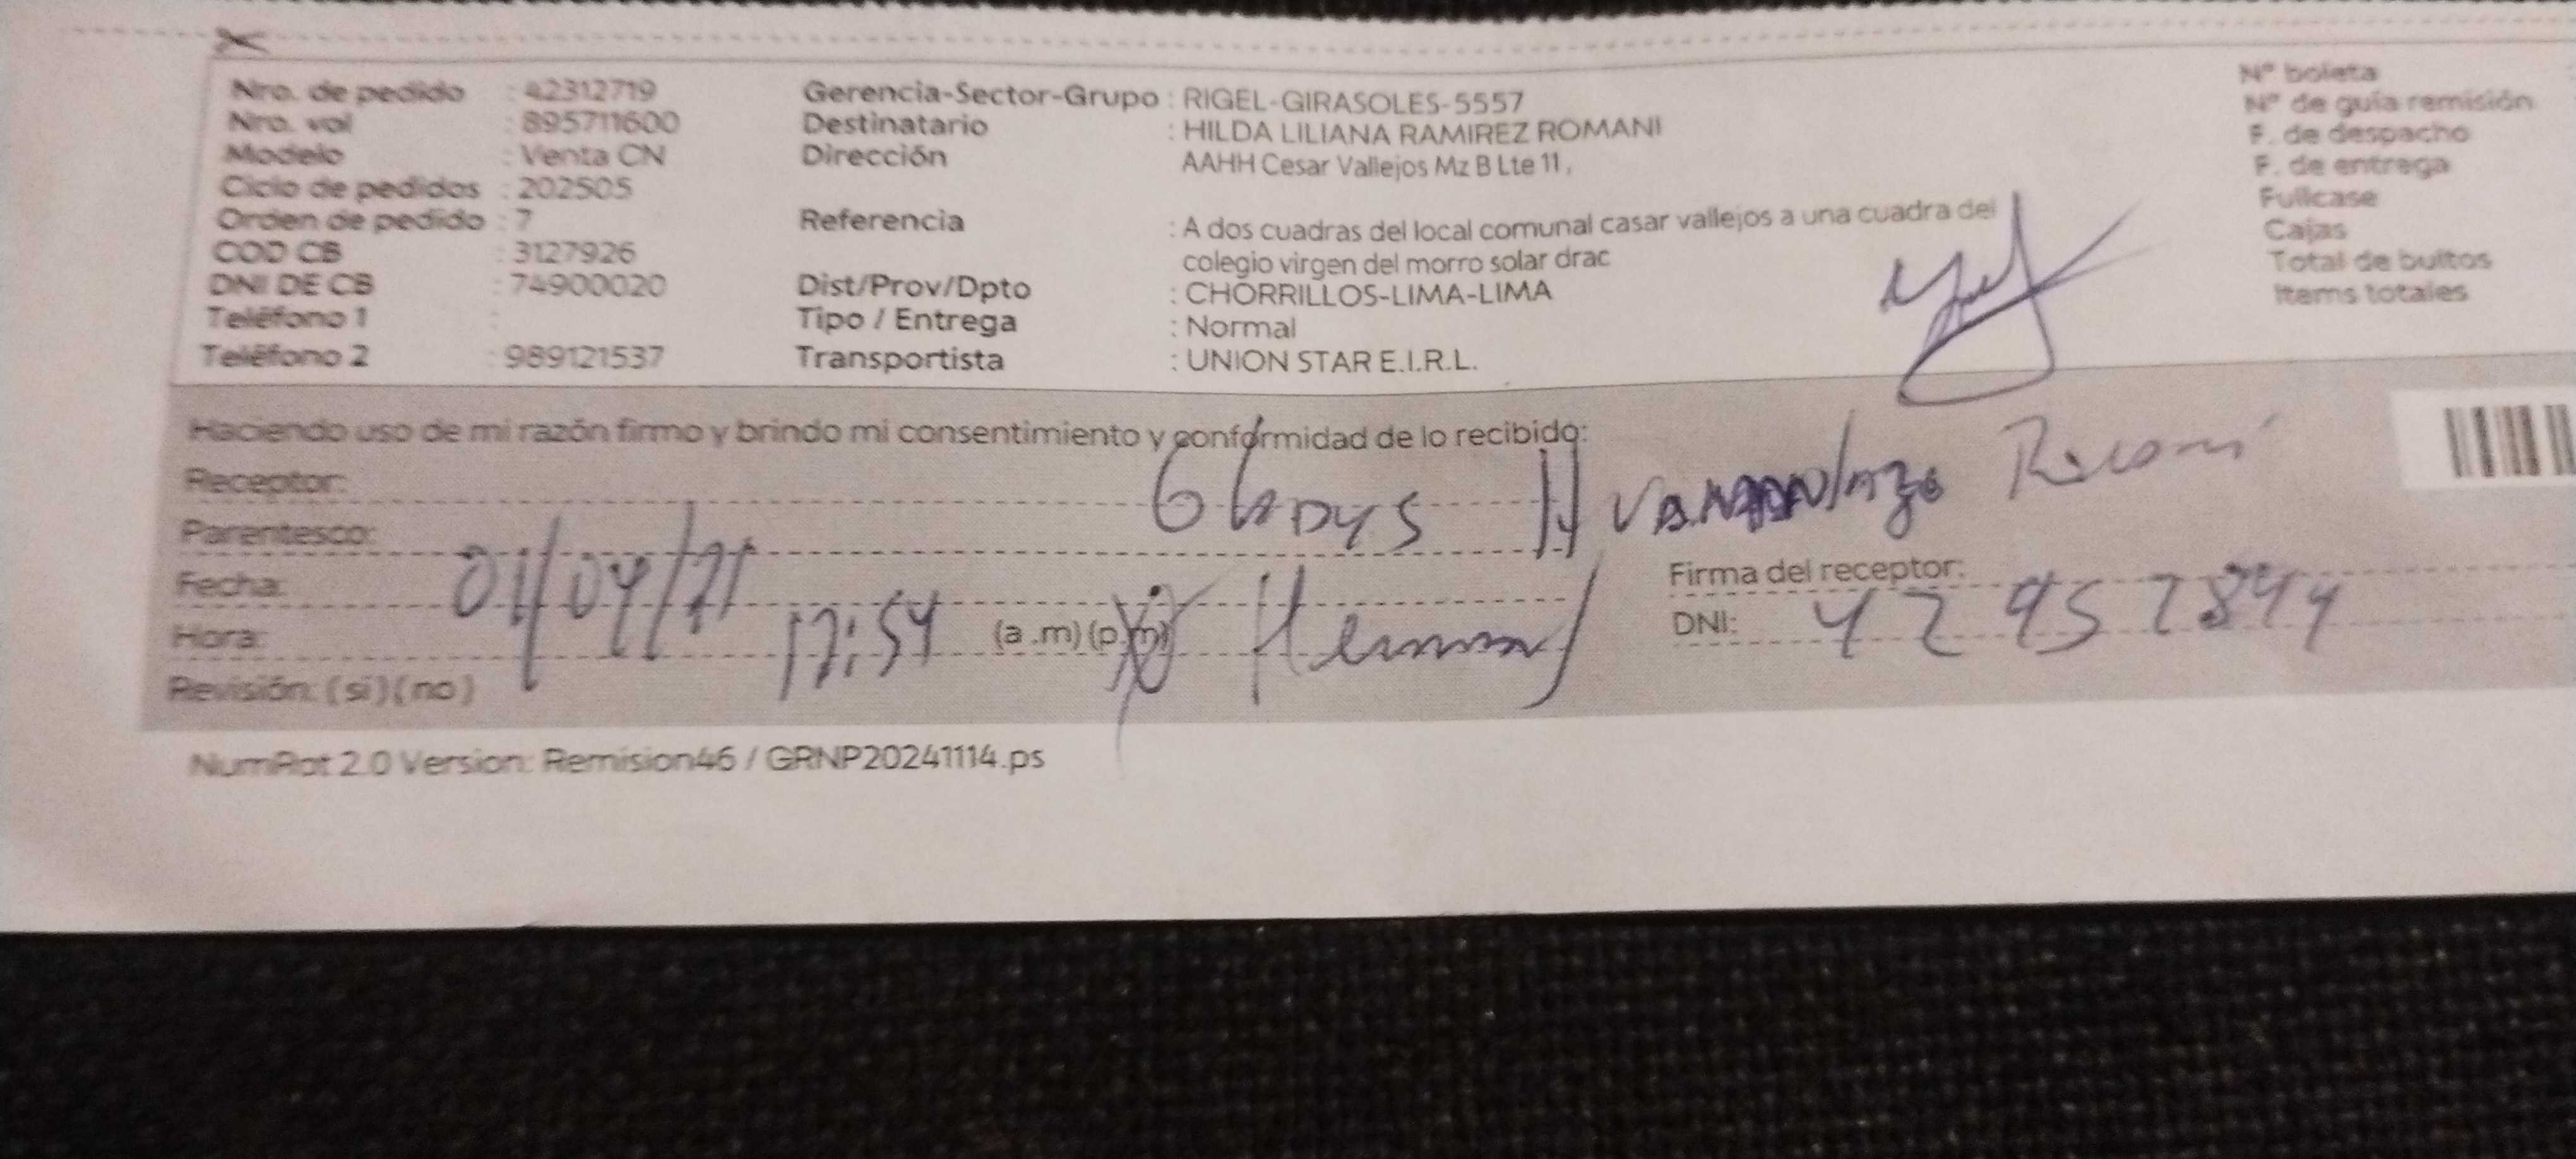 Nro. de pedido : 42312719
Nro. val : 895711600
Modelo : Venta CN
Ciclo de pedidos : 202505
Orden de pedido : 7
COD CB : 3127926
DNI DE CB : 74900020
Teléfono 1 :
Teléfono 2 : 989121537
Gerencia-Sector-Grupo : RIGEL-GIRASOLES-5557
Destinatario : HILDA LILIANA RAMIREZ ROMANI
Dirección AAHH Cesar Vallejos Mz B Lte 11,
Referencia : A dos cuadras del local comunal casar vallejos a una cuadra del
colegio virgen del morro solar drac
Dist/Prov/Dpto : CHORRILLOS-LIMA-LIMA
Tipo / Entrega : Normal
Transportista : UNION STAR E.I.R.L.
N° boleta
N° de guía remisión
F. de despacho
F. de entrega
Fullcase
Cajas
Total de bultos
Items totales
Haciendo uso de mi razón firmo y brindo mi consentimiento y conformidad de lo recibido:
Receptor: GlADYS
Parentesco:
Fecha: 01/04/
Hora: 17:54 (a .m) (p.m)
Revisión: (si) (no)
Firma del receptor:
DNI:
NumRot 2.0 Version: Remision46 / GRNP20241114.ps